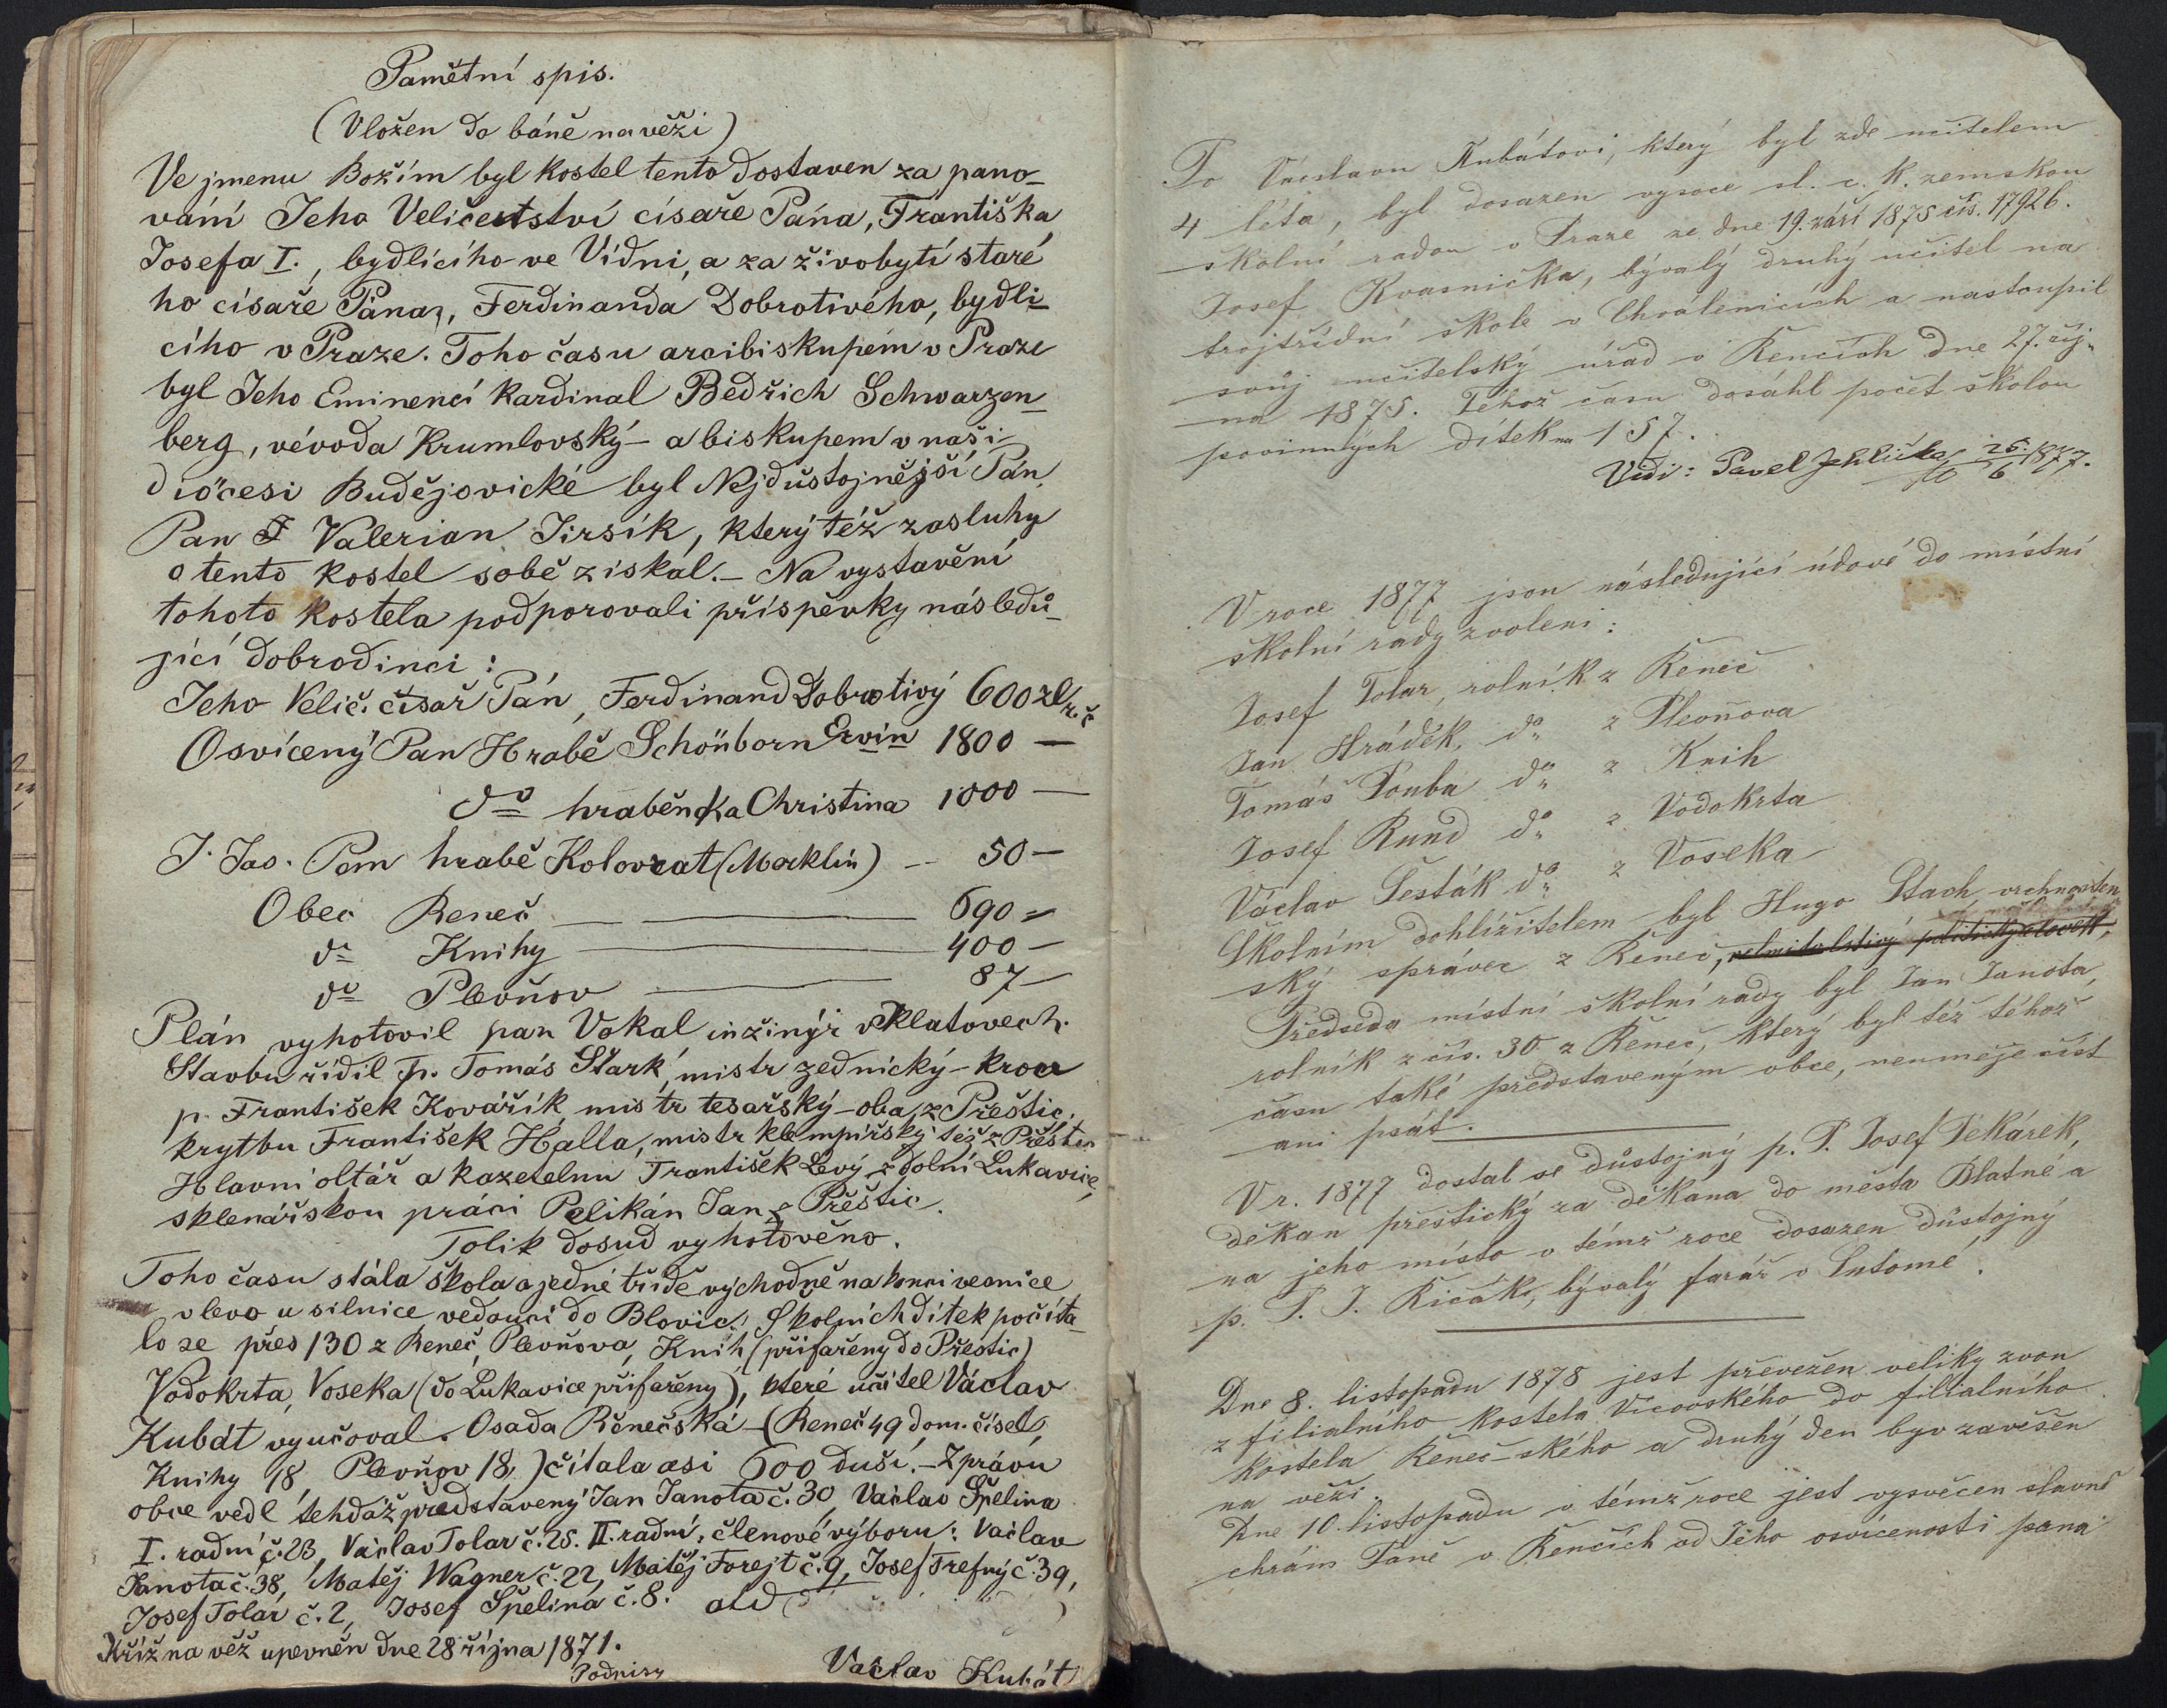 Pamětní spis.
(Vložen do báně na věži)
Ve jmenu Božím byl kostel tento dostaven za pano-
vání Jeho Veličenství císaře Pána, Františka
Josefa I., bydlícího ve Vídni, a za živobytí staré
ho císaře Pána, Ferdinanda Dobrotivého, bydlí-
cího v Praze. Toho času arcibiskupem v Praze
byl Jeho Eminencí kardinal Bedřich Schwarzen-
berg, vévoda Krumlovský - a biskupem v naší
diöcesi Budějovické byl Nejdůstojnější Pán
Pan Valerian Jirsík, který též zasluhy
o tento kostel sobě získal. - Na vystavění
tohoto kostela podporovali příspěvky následů-
jící dobrodinci:
Jeho Velič. císař Pán, Ferdinand Dobrotivý 600 zl r. č
Osvícený Pan Hrabě Schönborn Ervín 1800 —
do hraběnka Christina 1000 —
J. Jas. Pan hrabě Kolovrat (Merklín) — 50 —
Obec Reneč — 690 =
do Knihy — 400 —
do Plevňov — 87 —
Plán vyhotovil pan Vokal inžinýr v Klatovech.
Stavbu řídil p. Tomáš Stark, mistr zednický - krov
p. František Kovářík mistr tesařský - oba z Přeštic.
krytbu František Halla, mistr klempířský též z Přeštic
Hlavní oltář a kazatelnu František Levý z dolní Lukavice,
sklenářskou práci Pelikán Jan z Přeštic.
Tolik dosud vyhotověno.
Toho času stála škola o jedné třídě východně na konci vesnice
vlevo u silnice vedoucí do Blovic. Školních dítek počíta-
lo se přes 130 z Reneč, Plevňova, Knih (přifařeny do Přeštic)
Vodokrta, Voseka (do Lukavice přifařeny), které učitel Václav
Kubát vyučoval. Osada Rěnečská - (Reneč 49 dom. čísel,
Knihy 18, Plevňov 18,) čítala asi 600 duší. - Zprávu
obce vedl tehdáž představený Jan Janota č. 30, Václav Špelina
I. radní č. 23, Václav Tolar č. 25. II. radní, členové výboru: Václav
Janota č. 38, Matěj Wagner č. 22, Matěj Forejt č. 9, Josef Trefný č. 39,
Josef Tolar č. 2, Josef Špelina č. 8. atd
Kříž na věž upevněn dne 28 října 1871.
Podpisy Václav Kubát
Po Václavu Kubátovi, který byl zde učitelem
4 léta, byl dosazen vysoce sl. c. k. zemskou
školní radou v Praze ze dne 19. září 1875 čís. 17926.
Josef Kvasnička, bývalý druhý učitel na
trojtřídní škole v Chválenicích a nastoupil
svůj učitelský úřad v Řenčích dne 27. říj-
na 1875. Téhož času dosáhl počet školou
povinných dítek na 157.
Vidi: Pavel Jehlička 26./6 1877.
V roce 1877 jsou následující údové do místní
školní rady zvoleni:
Josef Tolar, rolník z Řeneč
Jan Hráděk, do z Plevňova
Tomáš Pouba do z Knih
Josef Rund do z Vodokrta
Václav Šesták do z Voseka
Školním dohlížitelem byl Hugo Stach, vrchnosten
ský správce z Řeneč,
Předseda místní školní rady byl Jan Janota,
rolník z čís. 30 z Řeneč, který byl též téhož
času také představeným obce, neuměje číst
ani psát.
V r. 1877 dostal se důstojný p. P. Josef Pekárek,
děkan přeštický za děkana do města Blatné a
na jeho místo v témž roce dosazen důstojný
p. P. J. Řičák, bývalý farář v Letomě.
Dne 8. listopadu 1878 jest převežen veliky zvon
z filialního kostela Vícovského do filialního
kostela Řeneč-ského a druhý den byv zavěšen
na věži.
Dne 10. listopadu v témž roce jest vysvěcen slavně
chrám Páně v Řenčích od Jeho osvícenosti pana